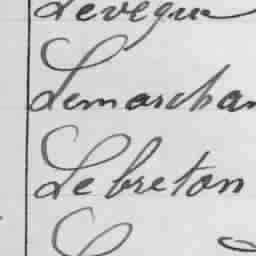 Levêque
Lemarchan
Lebreton